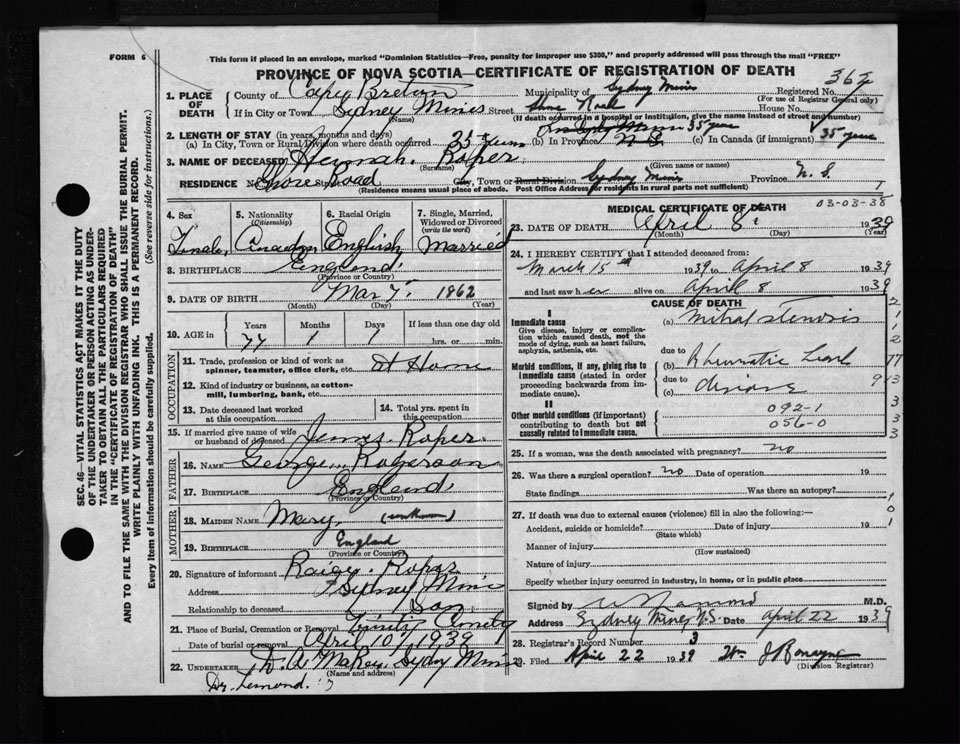 FORM 6
This form if placed in an envelope, marked "Dominion Statistics—Free, penalty for improper use $300," and properly addressed will pass through the mail "FREE"
PROVINCE OF NOVA SCOTIA—CERTIFICATE OF REGISTRATION OF DEATH
367
1. PLACE OF DEATH
County of Cape Breton Municipality of Sydney Mines Registered No.
(For use of Registrar General only)
If in City or Town Sydney Mines Street Shore Road House No.
(Name) (If death occurred in a hospital or institution, give the name instead of street and number)
2. LENGTH OF STAY (in years, months and days)
(a) In City, Town or Rural Division where death occurred 35 years (b) In Province N.S. 35 years (c) In Canada (if immigrant) 35 years
3. NAME OF DECEASED Hannah Roper
(Surname) (Given name or names)
RESIDENCE No. Shore Road Street City, Town or Rural Division Sydney Mines Province N. S.
(Residence means usual place of abode. Post Office Address for residents in rural parts not sufficient)
4. Sex 5. Nationality (Citizenship) 6. Racial Origin 7. Single, Married, Widowed or Divorced (write the word)
Female Canadian English Married
8. BIRTHPLACE England
(Province or Country)
9. DATE OF BIRTH Mar 7 1862
(Month) (Day) (Year)
10. AGE in Years Months Days If less than one day old
77 1 1 hrs. or min.
OCCUPATION
11. Trade, profession or kind of work as spinner, teamster, office clerk, etc. At Home
12. Kind of industry or business, as cotton-mill, lumbering, bank, etc.
13. Date deceased last worked at this occupation
14. Total yrs. spent in this occupation
15. If married give name of wife or husband of deceased James Roper
FATHER
16. NAME George Rogerson
17. BIRTHPLACE England
(Province or Country)
MOTHER
18. MAIDEN NAME Mary (unknown)
19. BIRTHPLACE England
(Province or Country)
20. Signature of informant Roper
Address Sydney Mines
Relationship to deceased Son
21. Place of Burial, Cremation or Removal Trinity Cemetery
Date of burial or removal April 10, 1939
22. UNDERTAKER Sydney Mines
(Name and address)
MEDICAL CERTIFICATE OF DEATH
03-03-38
23. DATE OF DEATH April 8 1939
(Month) (Day) (Year)
24. I HEREBY CERTIFY that I attended deceased from:
March 15th 1939 to April 8 1939
and last saw her alive on April 8 1939
CAUSE OF DEATH
I
Immediate cause
Give disease, injury or complication which caused death, not the mode of dying, such as heart failure, asphyxia, asthenia, etc.
(a) Mitral Stenosis
due to
Morbid conditions, if any, giving rise to immediate cause (stated in order proceeding backwards from immediate cause).
(b) Rheumatic
due to
(c)
II
Other morbid conditions (if important) contributing to death but not causally related to immediate cause.
092-1
056-0
25. If a woman, was the death associated with pregnancy? no
26. Was there a surgical operation? no Date of operation 193
State findings Was there an autopsy?
27. If death was due to external causes (violence) fill in also the following:—
Accident, suicide or homicide? Date of injury 193
(State which)
Manner of injury
(How sustained)
Nature of injury
Specify whether injury occurred in industry, in home, or in public place
Signed by M.D.
Address Sydney Mines N.S. Date April 22 1939
28. Registrar's Record Number 3
29. Filed April 22 1939
(Division Registrar)
SEC. 46—VITAL STATISTICS ACT MAKES IT THE DUTY
OF THE UNDERTAKER OR PERSON ACTING AS UNDER-
TAKER TO OBTAIN ALL THE PARTICULARS REQUIRED
IN THE "CERTIFICATE OF REGISTRATION OF DEATH"
AND TO FILE THE SAME WITH THE DIVISION REGISTRAR WHO SHALL ISSUE THE BURIAL PERMIT.
WRITE PLAINLY WITH UNFADING INK. THIS IS A PERMANENT RECORD.
Every item of information should be carefully supplied. (See reverse side for instructions.)